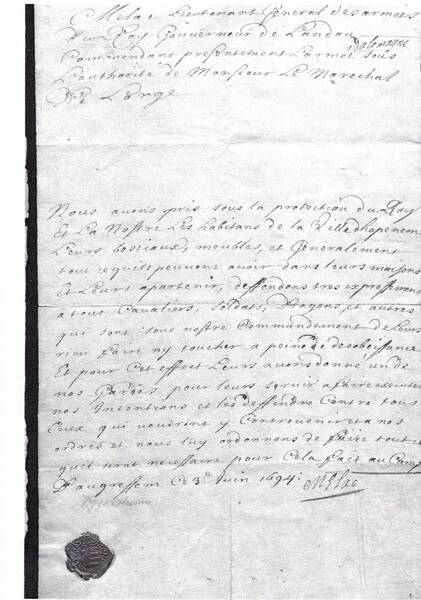 Melac Lieutenant General des armées
Du Roy Gouverneur de Landau
Commandant presentement L'armee d'alemagne sous
L'authorité de Monsieur Le Marechal
De Lorge
Nous avons pris sous la protection du Roy
Et La Nostre Les habitans de la Ville dhopenem
Leurs bestiaux, meubles, et Generalement
tout ce quils peuvent avoir dans leurs maisons
Et Leurs apartenir, deffendons tres expressement
a tous Cavaliers, soldats, Dragons et autres
qui sont sous nostre Commandement de Leurs
rien faire ny toucher a peine de desobeissance
Et pour Cet effect Leurs avons donné un de
nos Gardes pour leurs servir a faire executer
nos Intentions et les deffendre Contre tous
Ceux qui voudront y Contrevenir et a nos
ordres et nous luy ordonnons de faire tout ce
quil serat necessaire pour Cela fait au Camp
Daugressem Ce 3e Juin 1694:
Melac